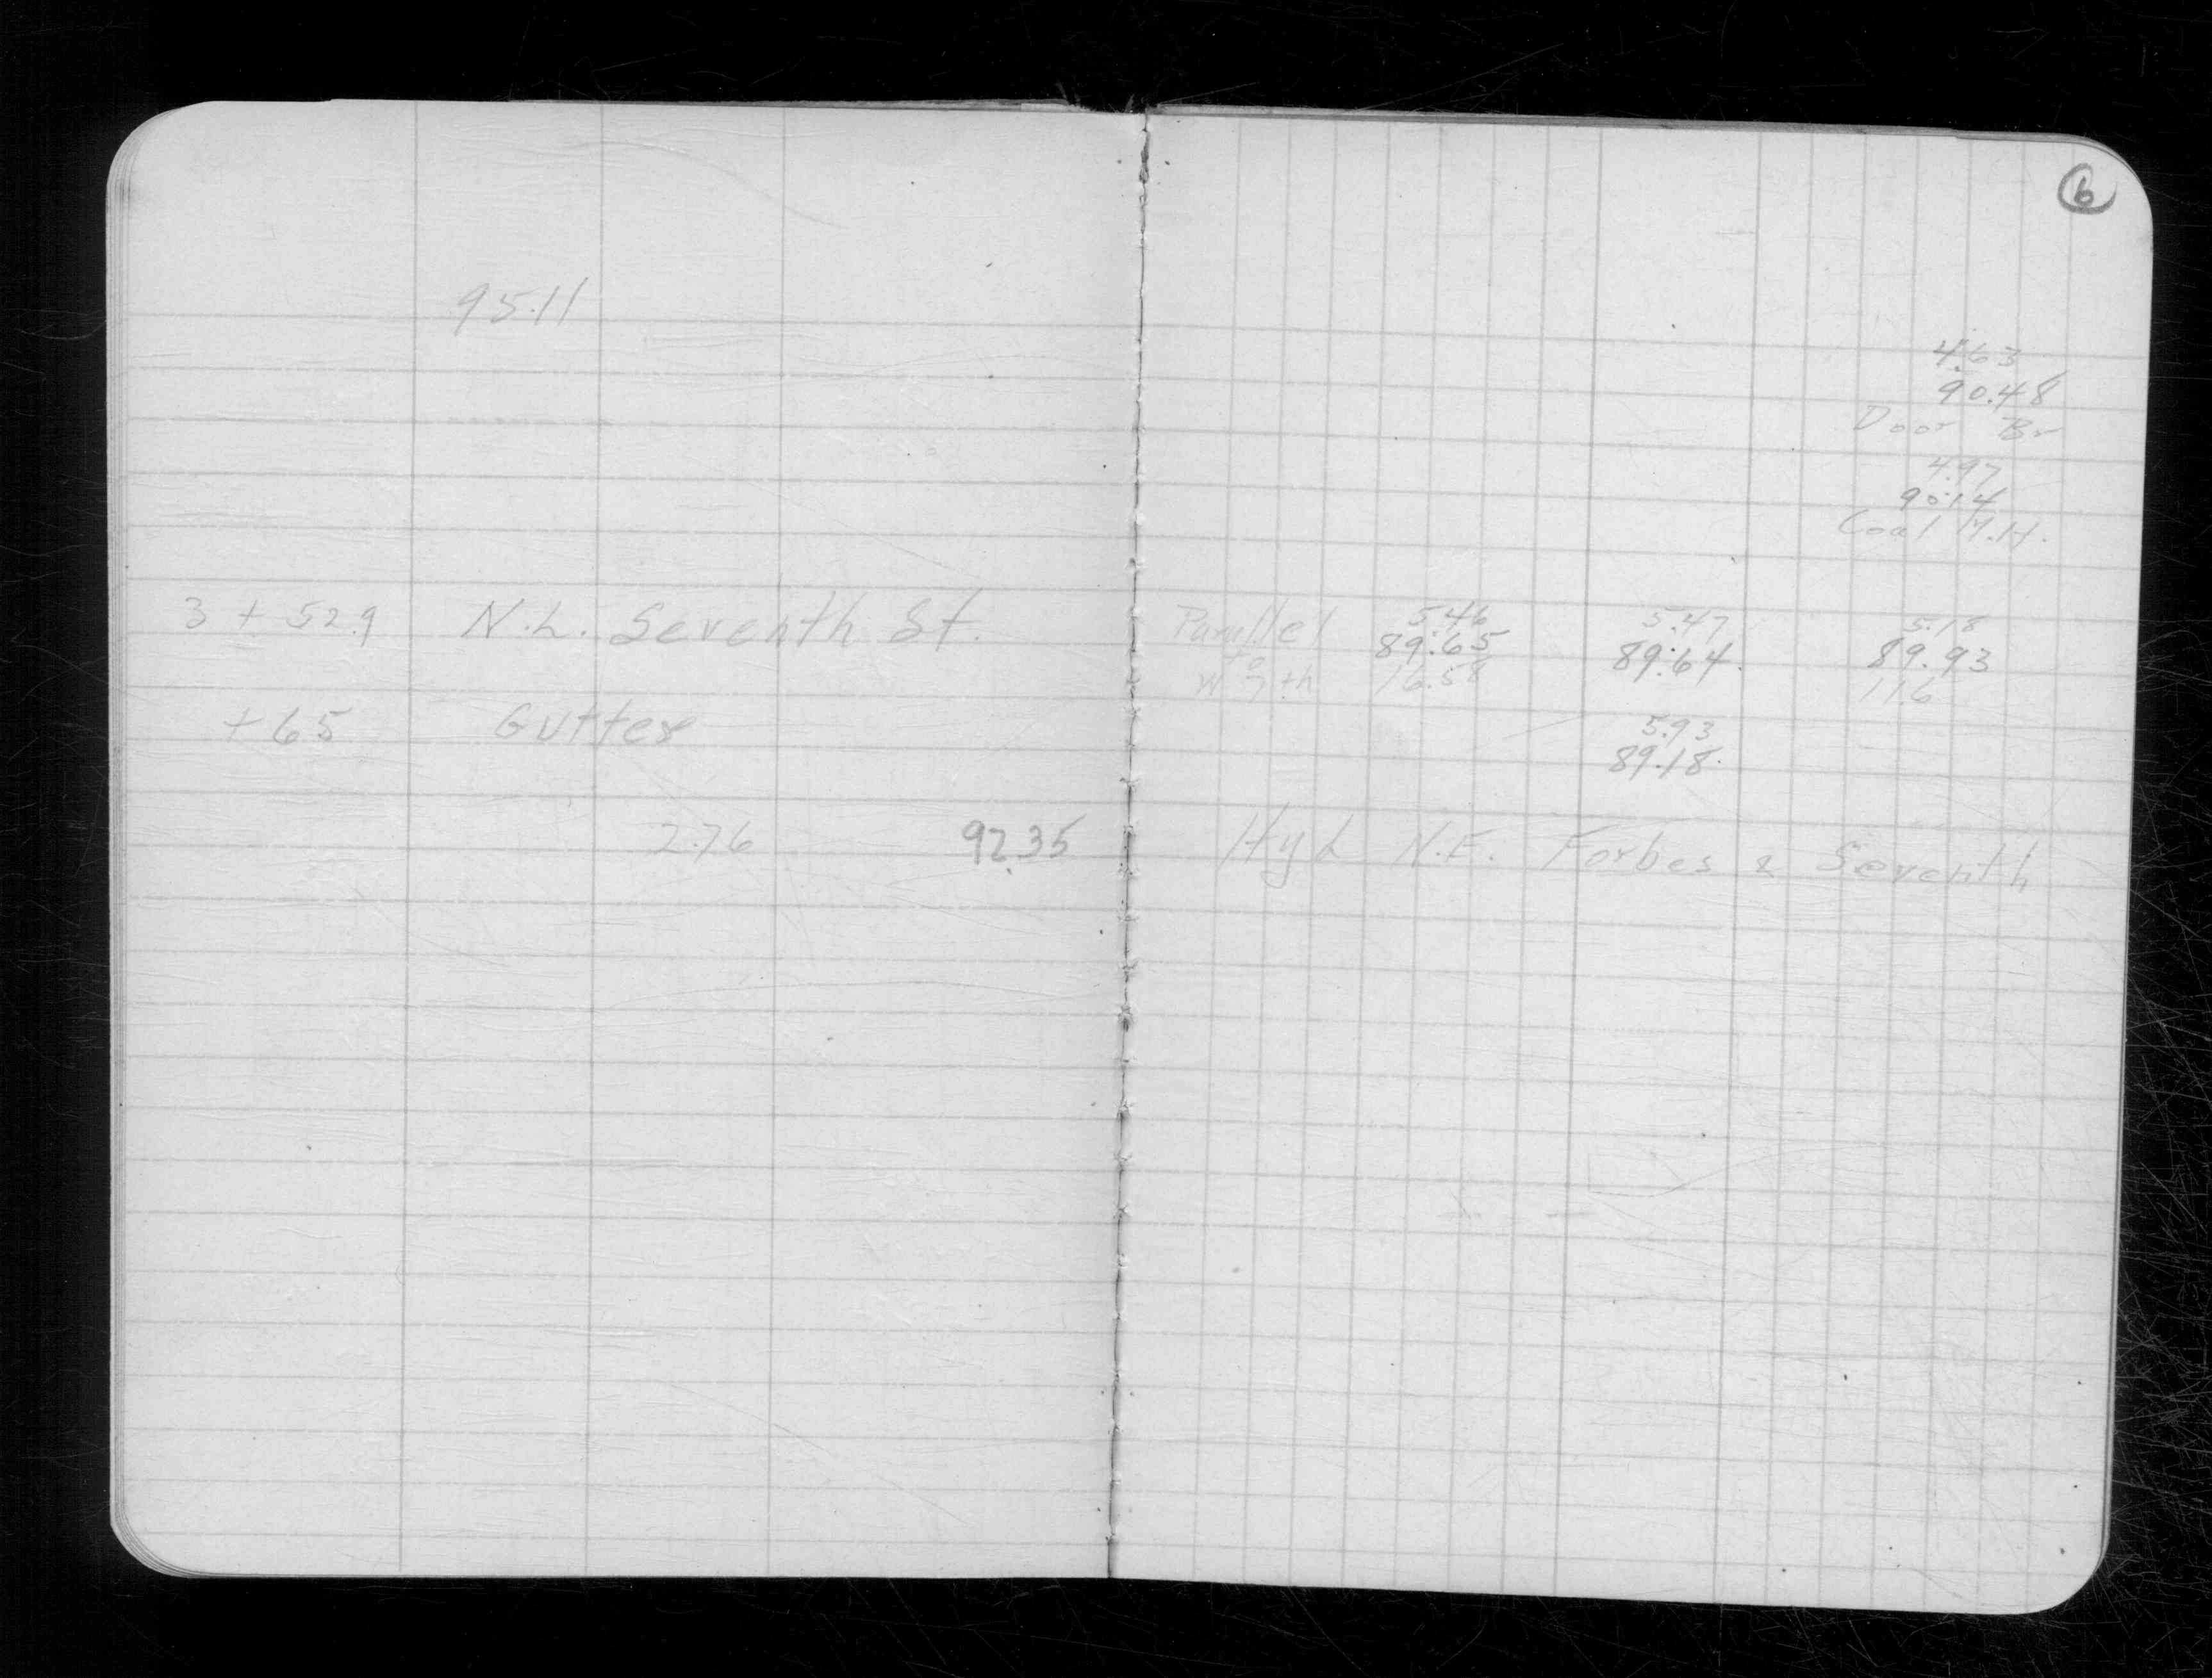 6
95.11
4.63
90.48
Door Br
4.97
90.14
Coal M.H.
3 + 52.9 N.L. Seventh St. Parallel 5.46 5.47 5.18
to 89.65 89.64 89.93
W 7th 16.58 11.6
+ 65 Gutter 5.93
89.18
2.76 92.35 Hyd N.E. Forbes & Seventh